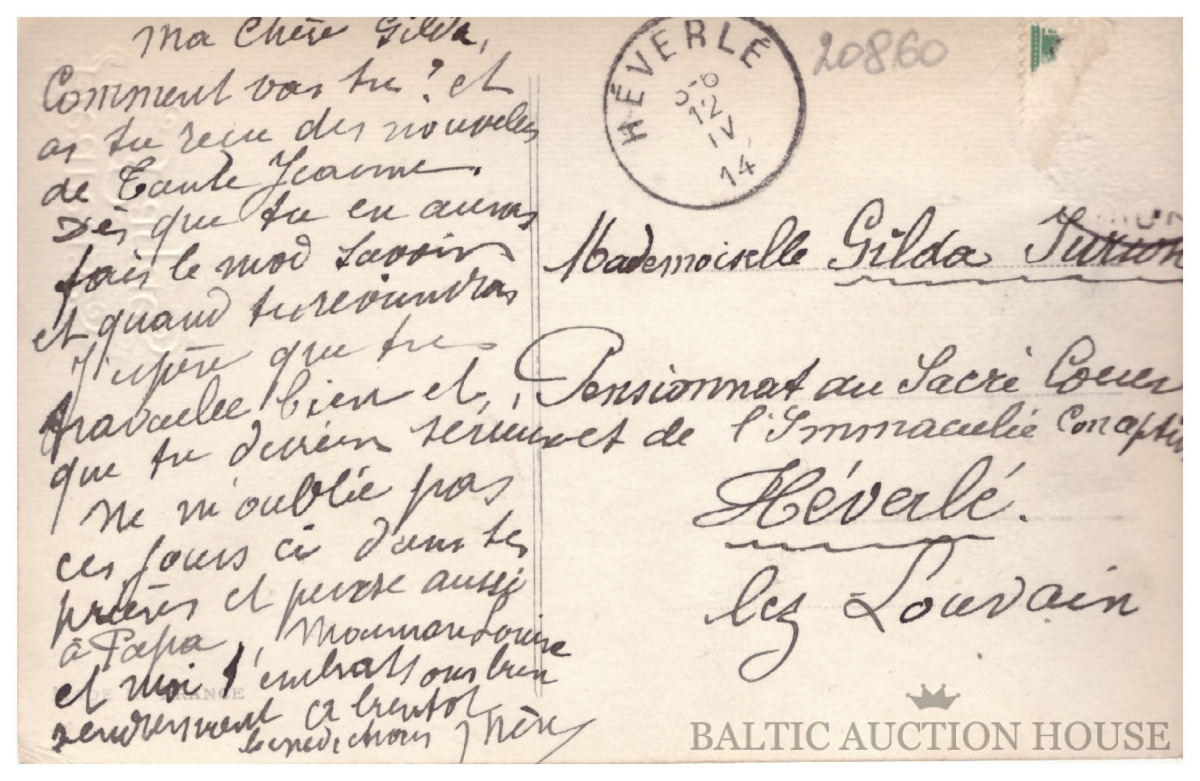 Ma Chère Gilda,
Comment vas tu? et
as tu reçu des nouvelles
de Tante Jeanne.
Dès que tu en auras
fais le moi savoir
et quand tu reviendras
J'espère que tu
travaille bien et
que tu deviens
Ne m'oublie pas
ces jours ci dans tes
prières et pense aussi
à Papa, Maman Louise
et moi t'embrassons bien
tendrement à bientot
bénédictions
HÉVERLÉ
12
IV
14
20860
Mademoiselle Gilda
Pensionnat du Sacré Coeur
et de l'Immaculée Conception
Héverlé.
lez Louvain
BALTIC AUCTION HOUSE